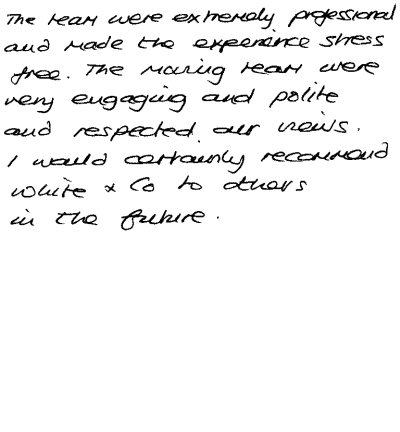 The team were extremely professional
and made the experience stress
free. The moving team were
very engaging and polite
and respected our views.
I would certainly recommend
White & Co to others
in the future.